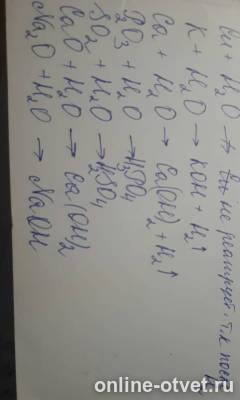 Cu + H₂O → Cu не реагирует, т.к. после
K + H₂O → KOH + H₂↑
Ca + H₂O → Ca(OH)₂ + H₂↑
P₂O₃ + H₂O → H₃PO₄
SO₂ + H₂O → H₂SO₄
CaO + H₂O → Ca(OH)₂
Na₂O + H₂O → NaOH
online-otvet.ru